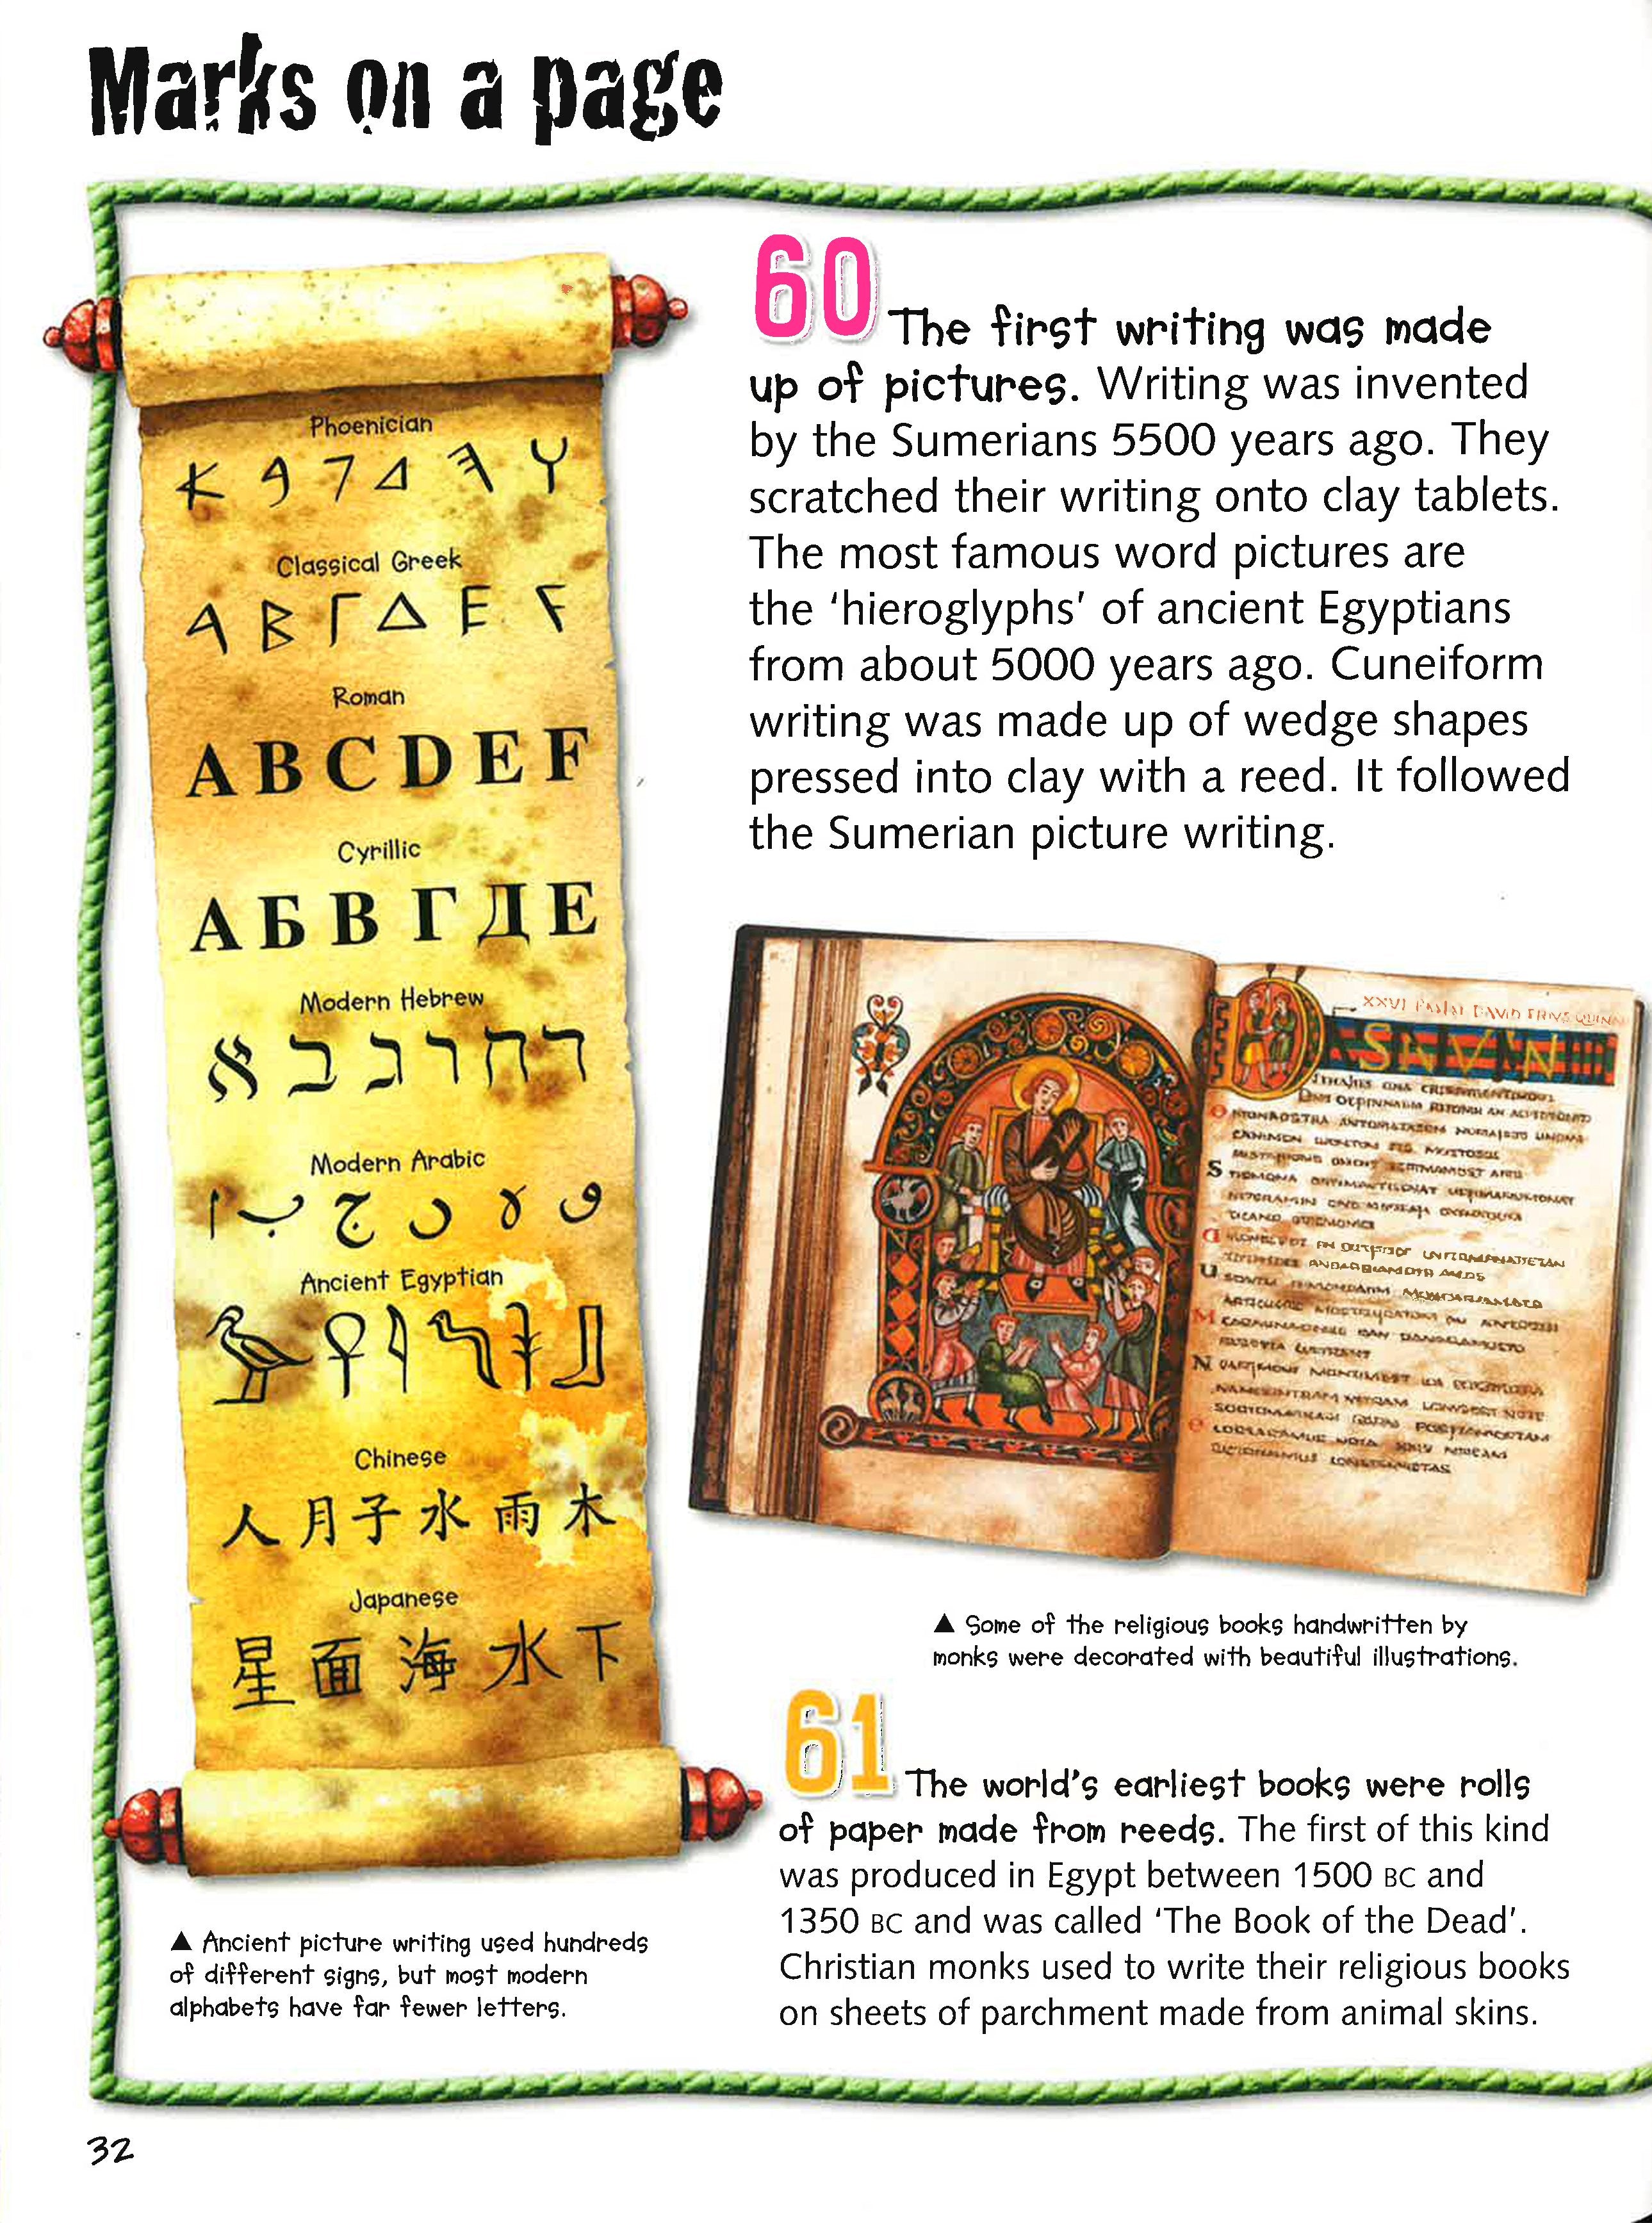 Marks on a page
Phoenician
𐤀 𐤁 𐤂 𐤃 𐤄 𐤅
Classical Greek
Α Β Γ Δ Ε Ϝ
Roman
A B C D E F
Cyrillic
А Б В Г Д Е
Modern Hebrew
א ב ג ו ח ד
Modern Arabic
Ancient Egyptian
Chinese
人 月 子 水 雨 木
Japanese
星 面 海 水 下
▲ Ancient picture writing used hundreds
of different signs, but most modern
alphabets have far fewer letters.
60 The first writing was made
up of pictures. Writing was invented
by the Sumerians 5500 years ago. They
scratched their writing onto clay tablets.
The most famous word pictures are
the ‘hieroglyphs’ of ancient Egyptians
from about 5000 years ago. Cuneiform
writing was made up of wedge shapes
pressed into clay with a reed. It followed
the Sumerian picture writing.
▲ Some of the religious books handwritten by
monks were decorated with beautiful illustrations.
61 The world’s earliest books were rolls
of paper made from reeds. The first of this kind
was produced in Egypt between 1500 BC and
1350 BC and was called ‘The Book of the Dead’.
Christian monks used to write their religious books
on sheets of parchment made from animal skins.
32